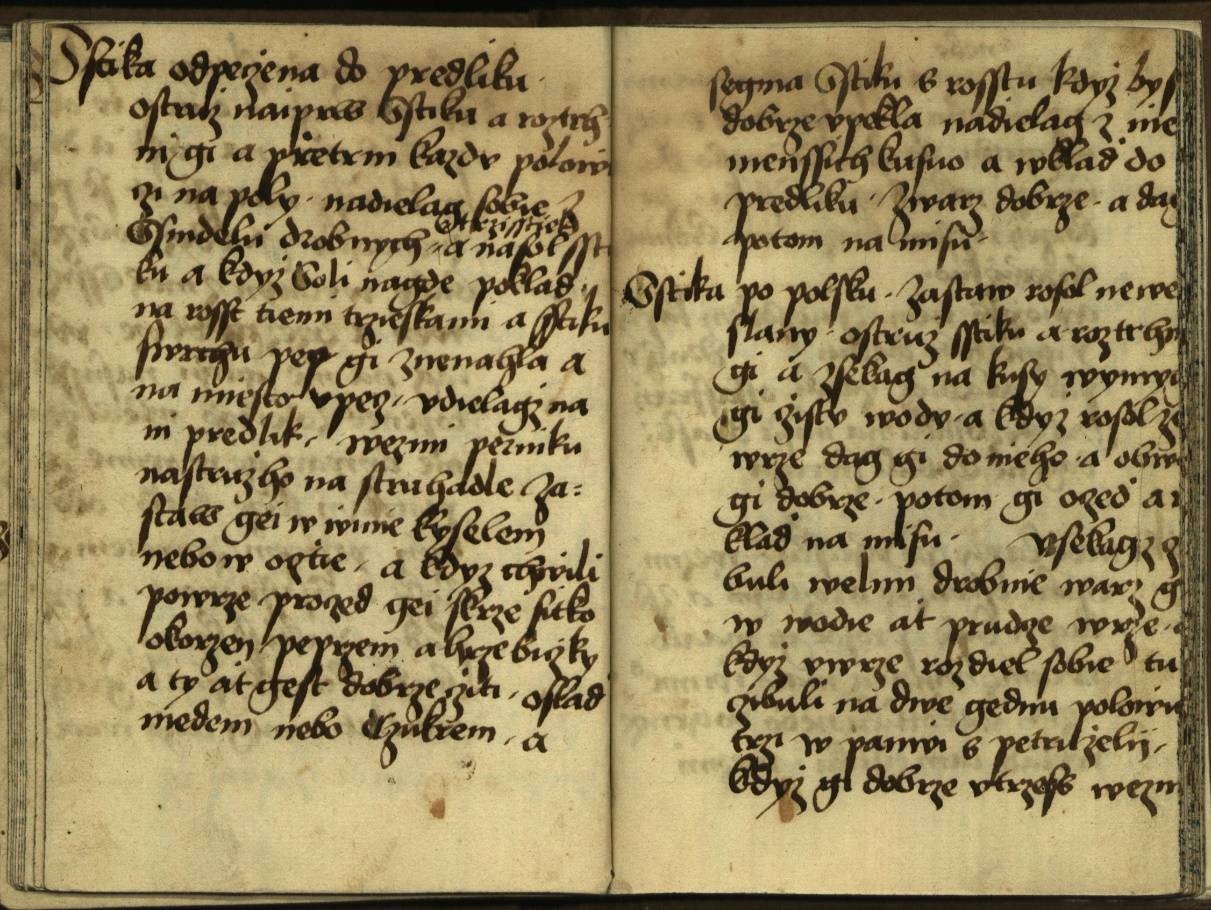 Sstika odpeczena do predliku.
ostruz naiprw Sstiku a roztrh
ni gi a przetrni kazdv polowi
czi na poly. nadielag sobie z
Ssindelu drobnych trzisstek a nasol sst
ku a kdyz Soli nagde poklad
na rosst tiemi trzieskami a sstiku
swrchu pecz gi znenahla a
na miesto vpecz. vdielagz na
ni predlik. wezmi perniku
nastruzho na struhadle za=
staw gei w winie kyselem
nebo w oczte. a kdyz chwili
powrze proczed gei skrze sitko
okorzen peprzem a hrzebiczky
a ty at gest dobrze cziti. oslad
medem nebo Czukrem. a
segma Sstiku s rosstu kdyz bys
dobrze vpekla nadielag z nie
menssich kusuo a wklad do
predliku. Zwarz dobrze. a dag
potom na misu.
Sstika po polsku. Zastaw rosol newe
slany. ostruz sstiku a roztrhn
gi a zsekag na kusy wymyg
gi czistv wodv. a kdyz rosol ze
wrze dag gi do nieho. a obwa
gi dobrze. potom gi oczed a w
klad na misu. Vsekagz cz
buli welmi drobnie warz g
w wodie at prudcze wrze. a
kdyz vwrze rozdiel sobie tu
czibuli na dwe gednu polowiczi
trzi w panwi s petruzelij.
kdyz gi dobrze vtrzess wezm